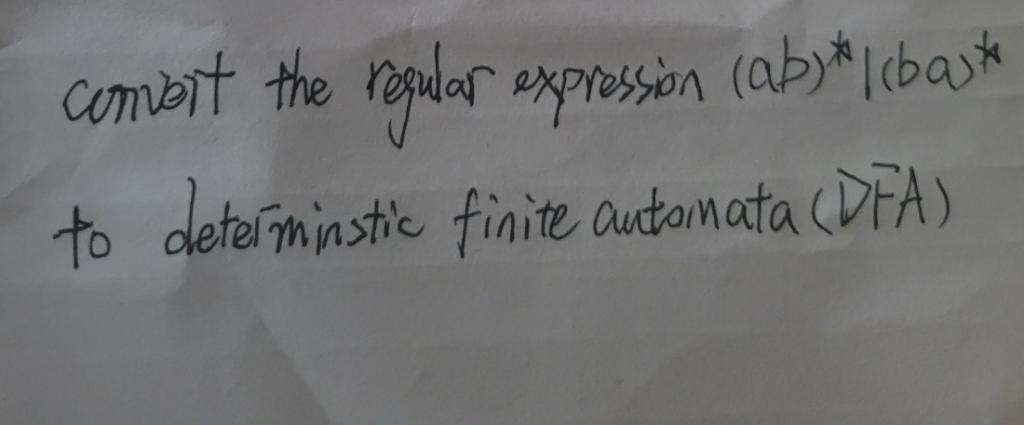 convert the regular expression (ab)*|(ba)*
to deterministic finite automata (DFA)